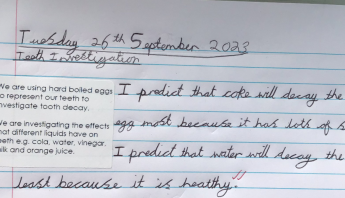 Tuesday 26th September 2023
Teeth Investigation
We are using hard boiled eggs
to represent our teeth to
investigate tooth decay.
We are investigating the effects
that different liquids have on
teeth e.g. cola, water, vinegar,
milk and orange juice.
I predict that coke will decay the
egg most because it has lots of s
I predict that water will decay the
least because it is healthy.